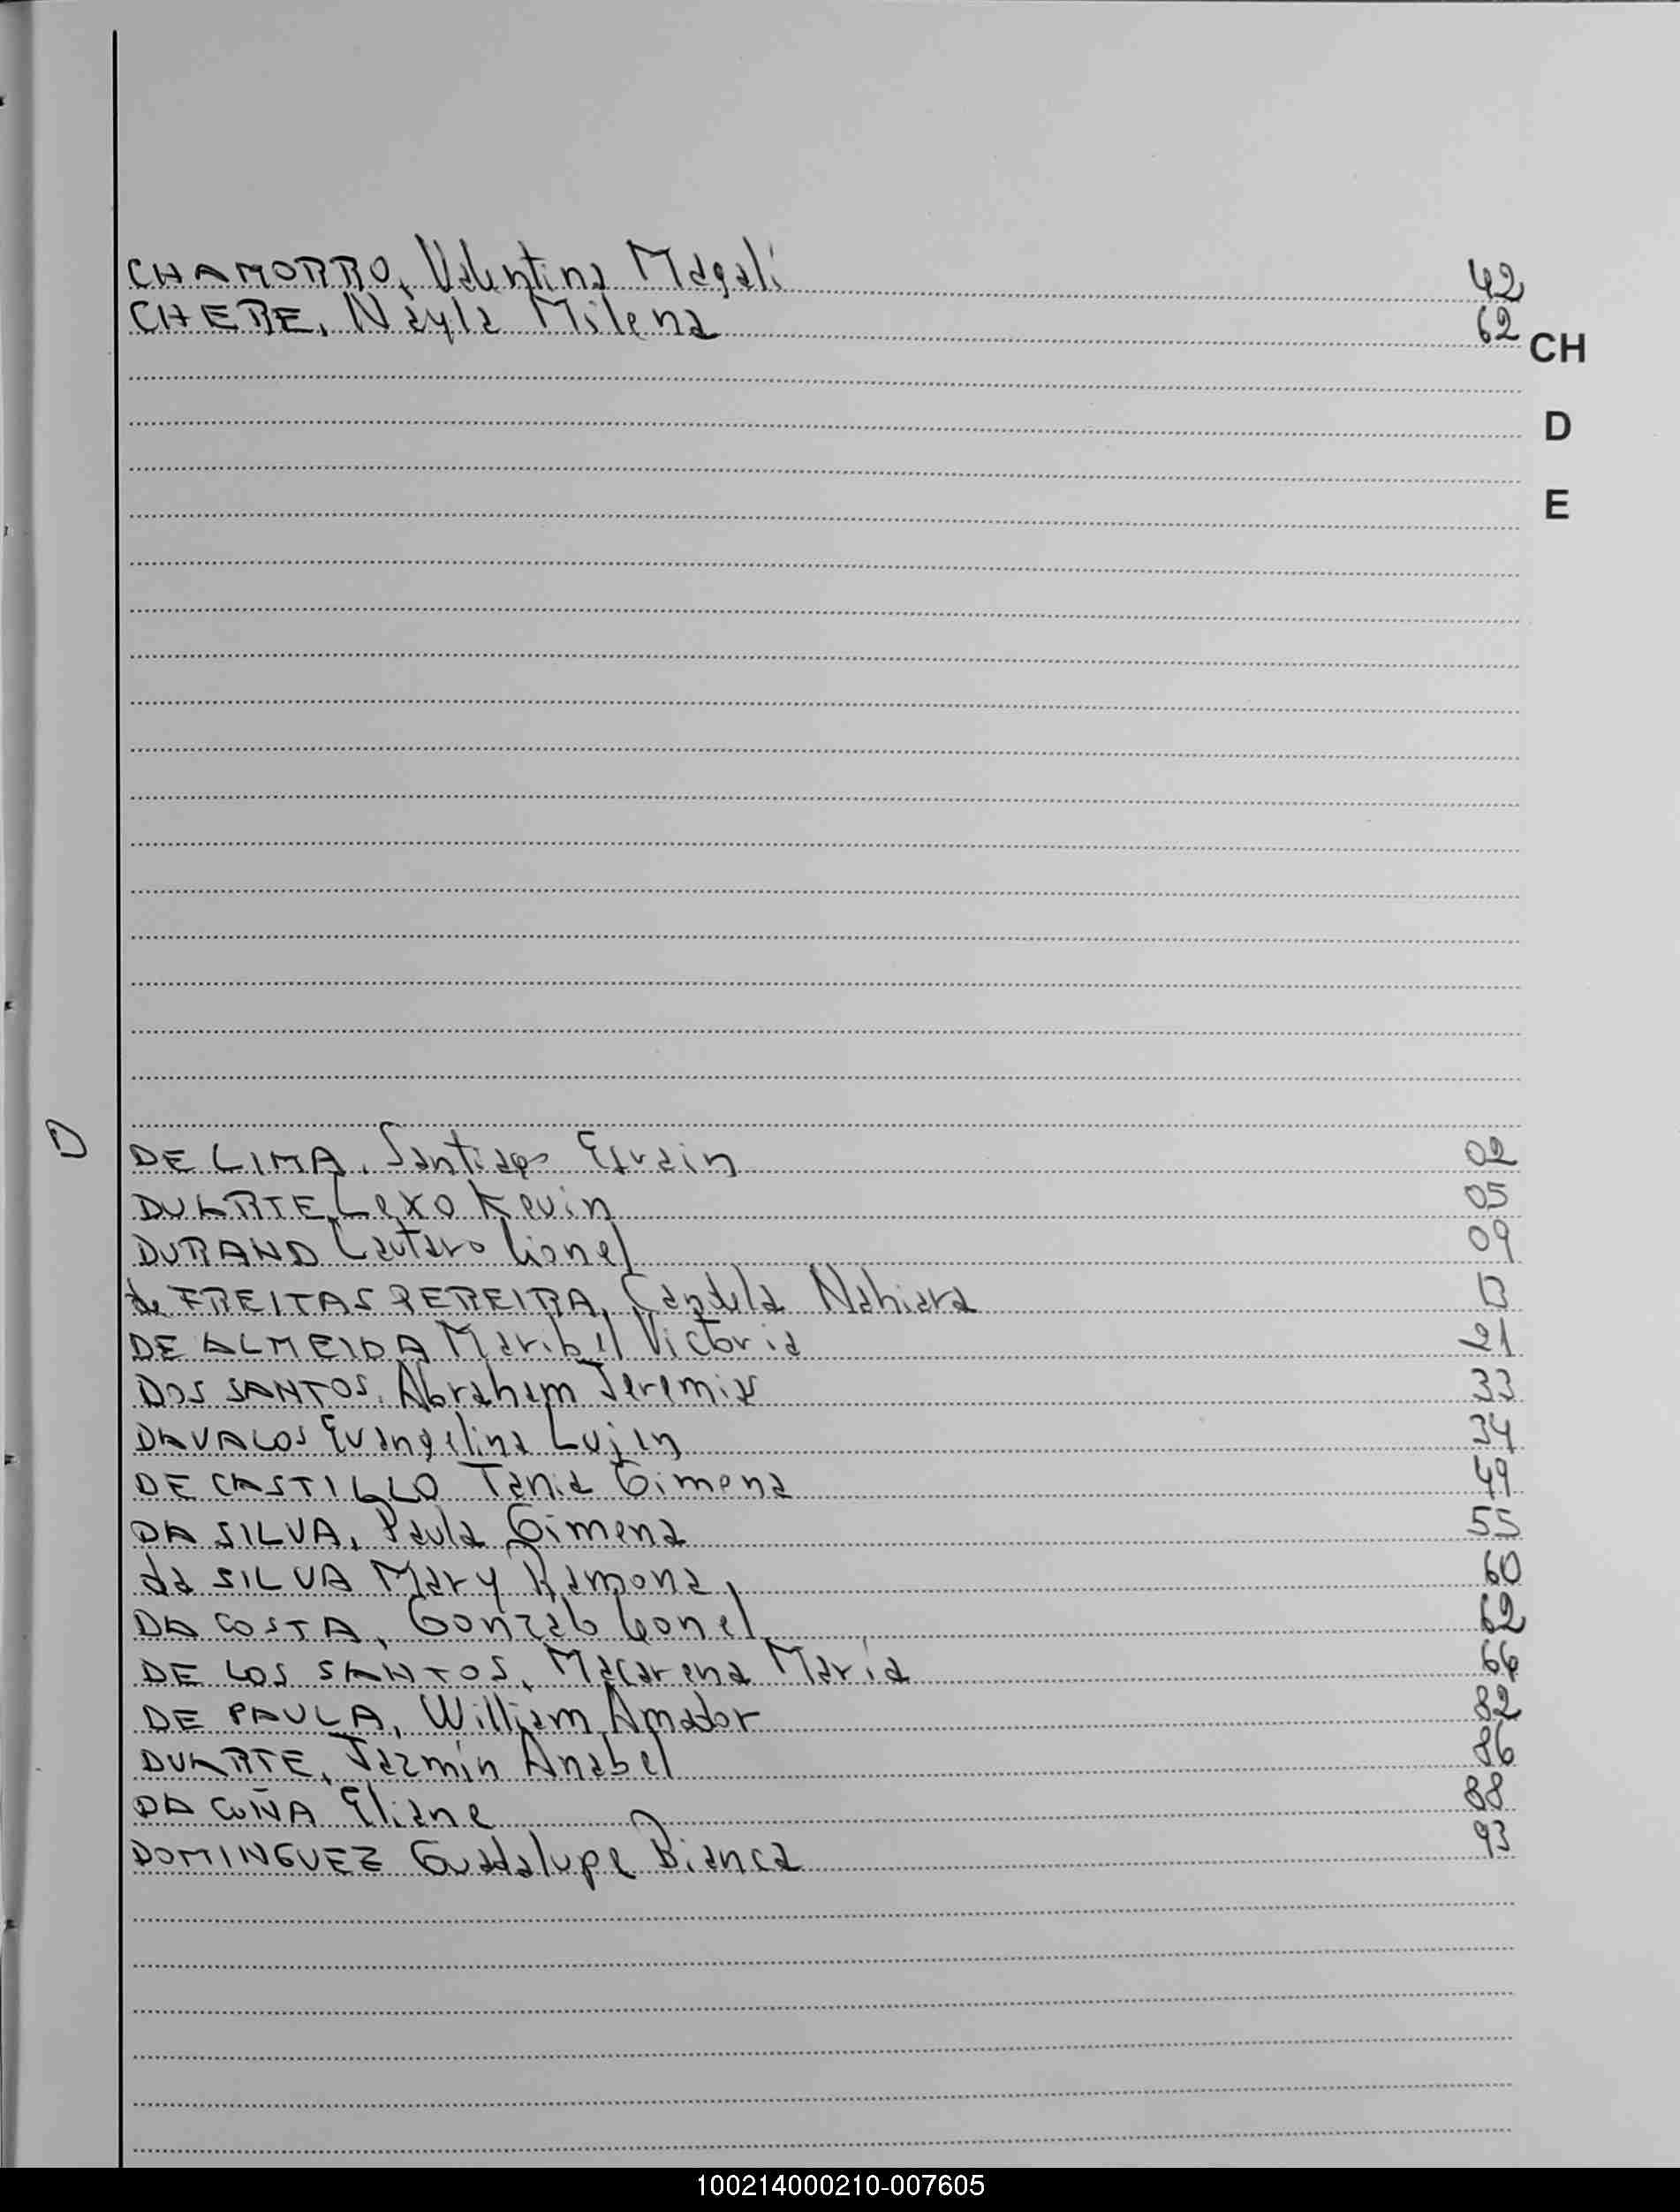 CHAMORRO, Valentina Magalí 42
CHERE, Nayla Milena 62
CH
D
E
D
DE LIMA, Santiago Efrain 02
DUARTE, Lexo Kevin 05
DURAND Lautaro Lionel 09
de FREITAS PEREIRA, Candela Nahiara 13
DE ALMEIDA Maribel Victoria 21
DOS SANTOS, Abraham Jeremias 33
DAVALOS Evangelina Lujan 34
DE CASTILLO Tania Gimena 49
DA SILVA, Paula Gimena 55
da SILVA Mary Ramona, 60
DA COSTA, Gonzalo Leonel 62
DE LOS SANTOS, Macarena María 66
DE PAULA, William Amador 82
DUARTE, Jazmín Anabel 86
DA CUÑA Eliane 88
DOMINGUEZ Guadalupe Bianca 93
100214000210-007605